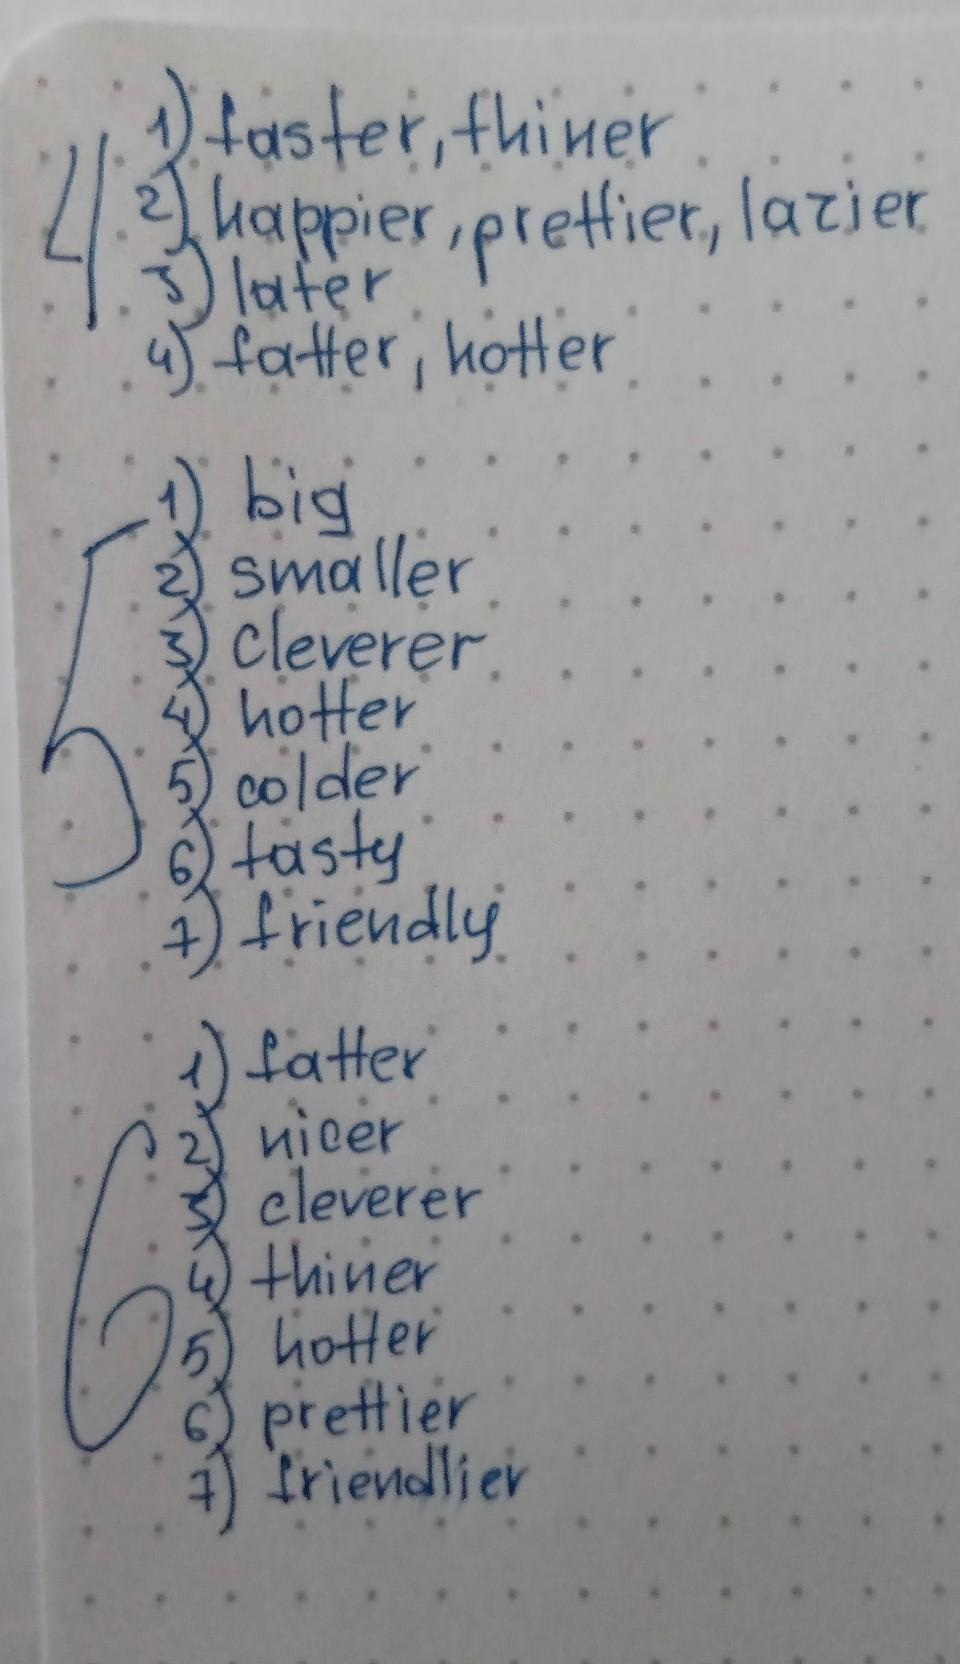 4
1) faster, thiner
2) happier, prettier, lazier
3) later
4) fatter, hotter
5
1) big
2) smaller
3) cleverer
4) hotter
5) colder
6) tasty
7) friendly
6
1) fatter
2) nicer
3) cleverer
4) thiner
5) hotter
6) prettier
7) friendlier